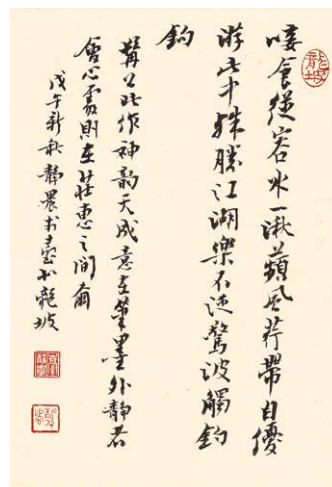 龍坡
唼食從容水一湫蘋風荇帶自優
游此中殊勝江湖樂不逐驚波觸釣
鈎
髯公此作神韵天成意在筆墨外静者
會心處則在莊惠之間爾
戊午新秋静農於臺北龍坡